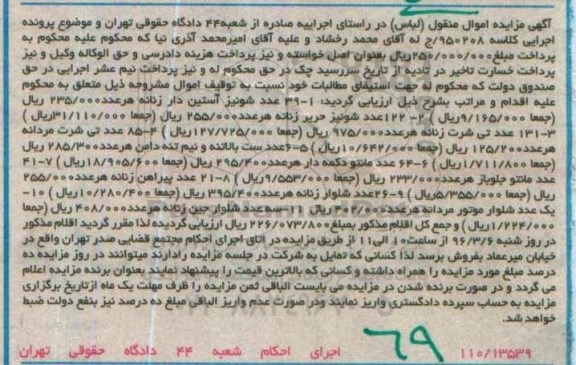 آگهی مزایده اموال منقول (لباس) در راستای اجراییه صادره از شعبه۴۴ دادگاه حقوقی تهران و موضوع پرونده
اجرایی کلاسه ۹۵۰۲۰۸/ج له آقای محمد رخشاد و علیه آقای امیرمحمد آذری نیا که محکوم علیه محکوم به
پرداخت مبلغ۲۵۰/۰۰۰/۰۰۰ریال بعنوان اصل خواسته و نیز پرداخت هزینه دادرسی و حق الوکاله وکیل و نیز
پرداخت خسارت تاخیر در تادیه از تاریخ سررسید چک در حق محکوم له و نیز پرداخت نیم عشر اجرایی در حق
صندوق دولت که محکوم له جهت استیفای مطالبات خود نسبت به توقیف اموال مشروحه ذیل متعلق به محکوم
علیه اقدام و مراتب بشرح ذیل ارزیابی گردید: ۱-۳۹ عدد شونیز آستین دار زنانه هرعدد۲۳۵/۰۰۰ ریال
(جمعا ۹/۱۶۵/۰۰۰ریال) ۲-۱۲۲ عدد شونیز حریر زنانه هرعدد۲۵۵/۰۰۰ ریال (جمعا ۳۱/۱۱۰/۰۰۰ریال)
۳-۱۳۱ عدد تی شرت زنانه هرعدد۹۷۵/۰۰۰ ریال (جمعا ۱۲۷/۷۲۵/۰۰۰ریال) ۴-۸۵ عدد تی شرت مردانه
هرعدد۱۲۵/۲۰۰ ریال (جمعا ۱۰/۶۴۲/۰۰۰ ریال) ۵-۶عدد ست بالاتنه و نیم تنه دامن هرعدد۲۸۵/۳۰۰ ریال
(جمعا ۱/۷۱۱/۸۰۰ ریال) ۶-۶۴ عدد مانتو دکمه دار هرعدد۲۹۵/۴۰۰ ریال (جمعا ۱۸/۹۰۵/۶۰۰ریال) ۷-۴۱
عدد مانتو جلوباز هرعدد۲۳۳/۰۰۰ ریال (جمعا ۹/۵۵۳/۰۰۰ریال) ۸-۲۱ عدد پیراهن زنانه هرعدد۲۵۵/۰۰۰
ریال (جمعا ۵/۳۵۵/۰۰۰ریال) ۹-۲۶عدد شلوار زنانه هرعدد۳۹۵/۴۰۰ ریال (جمعا ۱۰/۲۸۰/۴۰۰ریال) ۱۰-
یک عدد شلوار موتور مردانه هرعدد۴۰۲/۰۰۰ ریال ۱۱-سه عدد شلوار جین زنانه هرعدد۴۰۸/۰۰۰ ریال (جمعا
۱/۲۲۴/۰۰۰ریال) و جمع کل اقلام مذکور بمبلغ۲۲۶/۰۷۳/۸۰۰ ریال ارزیابی گردیده لذا مقرر گردید اقلام مذکور
در روز شنبه ۹۶/۳/۶ از ساعت۱۰ الی۱۱ از طریق مزایده در اتاق اجرای احکام مجتمع قضایی صدر تهران واقع در
خیابان میرعماد بفروش برسد لذا کسانی که تمایل به شرکت در جلسه مزایده را دارند میتوانند در روز مزایده ده
درصد مبلغ مورد مزایده را همراه داشته و کسانی که بالاترین قیمت را پیشنهاد نمایند بعنوان برنده مزایده اعلام
می گردد و در صورت برنده شدن در مزایده می بایست الباقی ثمن مزایده را ظرف مهلت یک ماه ازتاریخ برگزاری
مزایده به حساب سپرده دادگستری واریز نمایند ودر صورت عدم واریز الباقی مبلغ ده درصد نیز بنفع دولت ضبط
خواهد شد.
۶۹
۱۱۰/۱۳۵۳۹ اجرای احکام شعبه ۴۴ دادگاه حقوقی تهران